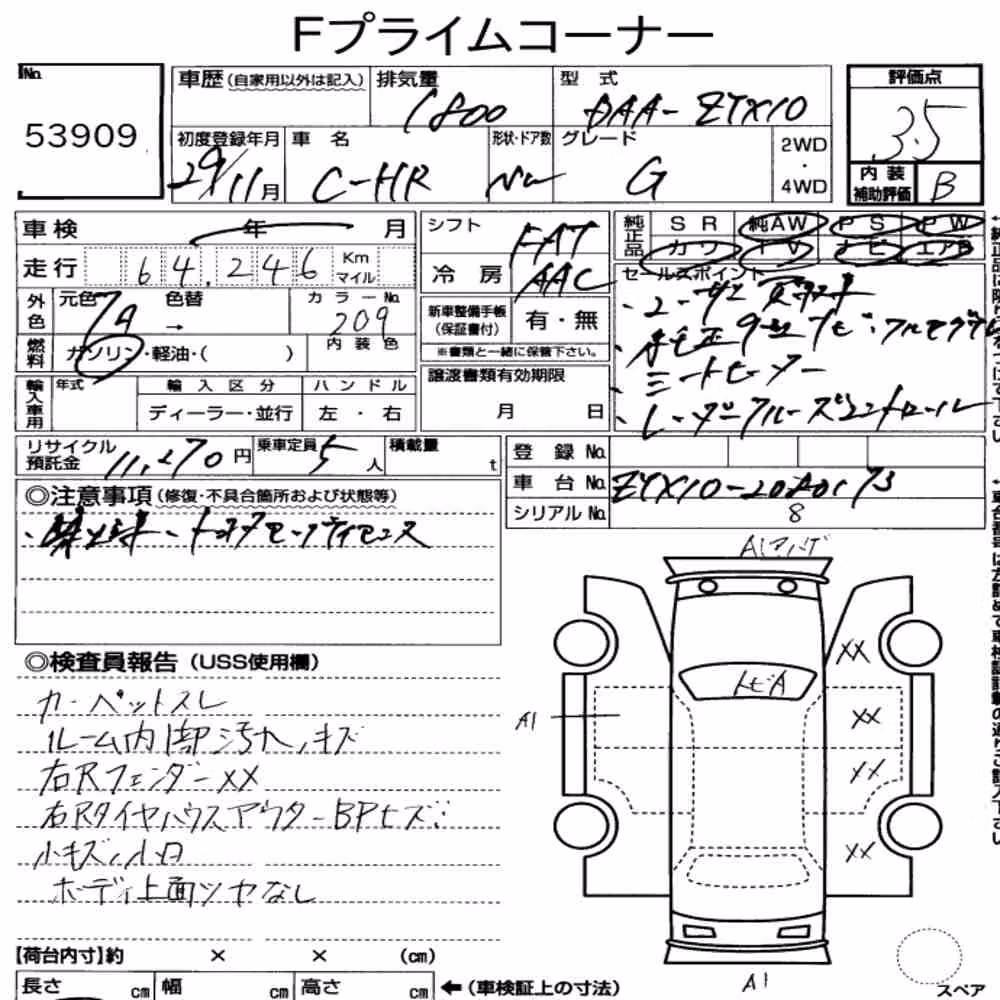 Fプライムコーナー
No.
53909
車歴(自家用以外は記入)
排気量
1800
型 式
DAA-ZYX10
評価点
3.5
初度登録年月
29/11月
車 名
C-HR
形状・ドア数
グレード
G
2WD
・
4WD
内 装
補助評価
B
車検 年 月
走行 64,246 Km
マイル
外色
元色
色替
→
カラーNo.
209
内装色
燃料
ガソリン・軽油・( )
輸入車用
年式
輸入区分
ディーラー・並行
ハンドル
左 ・ 右
シフト
FAT
冷 房
AAC
新車整備手帳
(保証書付)
有・無
※書類と一緒に保管下さい。
譲渡書類有効期限
月 日
純正品
SR 純AW PS PW
カワ TV ナビ エアB
セールスポイント
・シートヒーター
・レーダークルーズコントロール
リサイクル
預託金
11,270円
乗車定員
5人
積載量
t
登 録 No.
車 台 No.
シリアル No.
8
◎注意事項(修復・不具合箇所および状態等)
◎検査員報告(USS使用欄)
カーペットスレ
ルーム内部汚れ、キズ
右Rフェンダー XX
右RタイヤハウスアウターBPヒズ:
小キズ、小凹
ボディ上面ツヤなし
A1
トビA
XX
XX
XX
XX
A1
スペア
【荷台内寸】約 × × (cm)
長さ cm 幅 cm 高さ cm ←(車検証上の寸法)